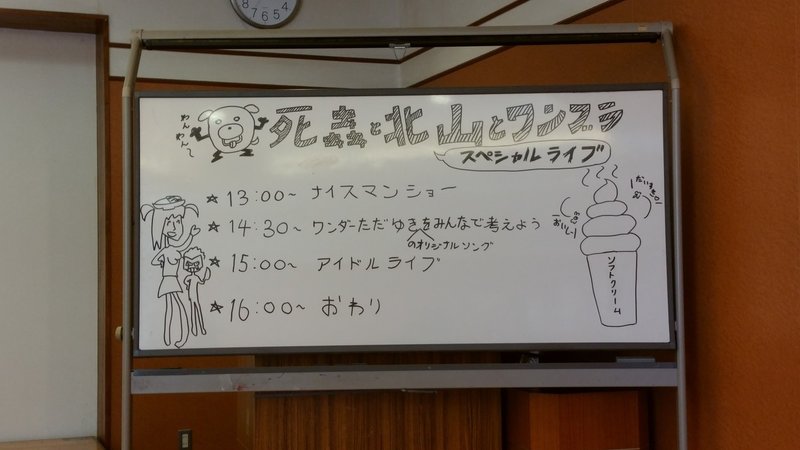 8 7 6 5 4
死蟲と北山とワンブラ
わんわん〜
スペシャルライブ
☆13:00〜 ナイスマンショー
☆14:30〜 ワンダーただゆきをみんなで考えよう
のオリジナルソング
☆15:00〜 アイドルライブ
☆16:00〜 おわり
おいしー!
ソフトクリーム